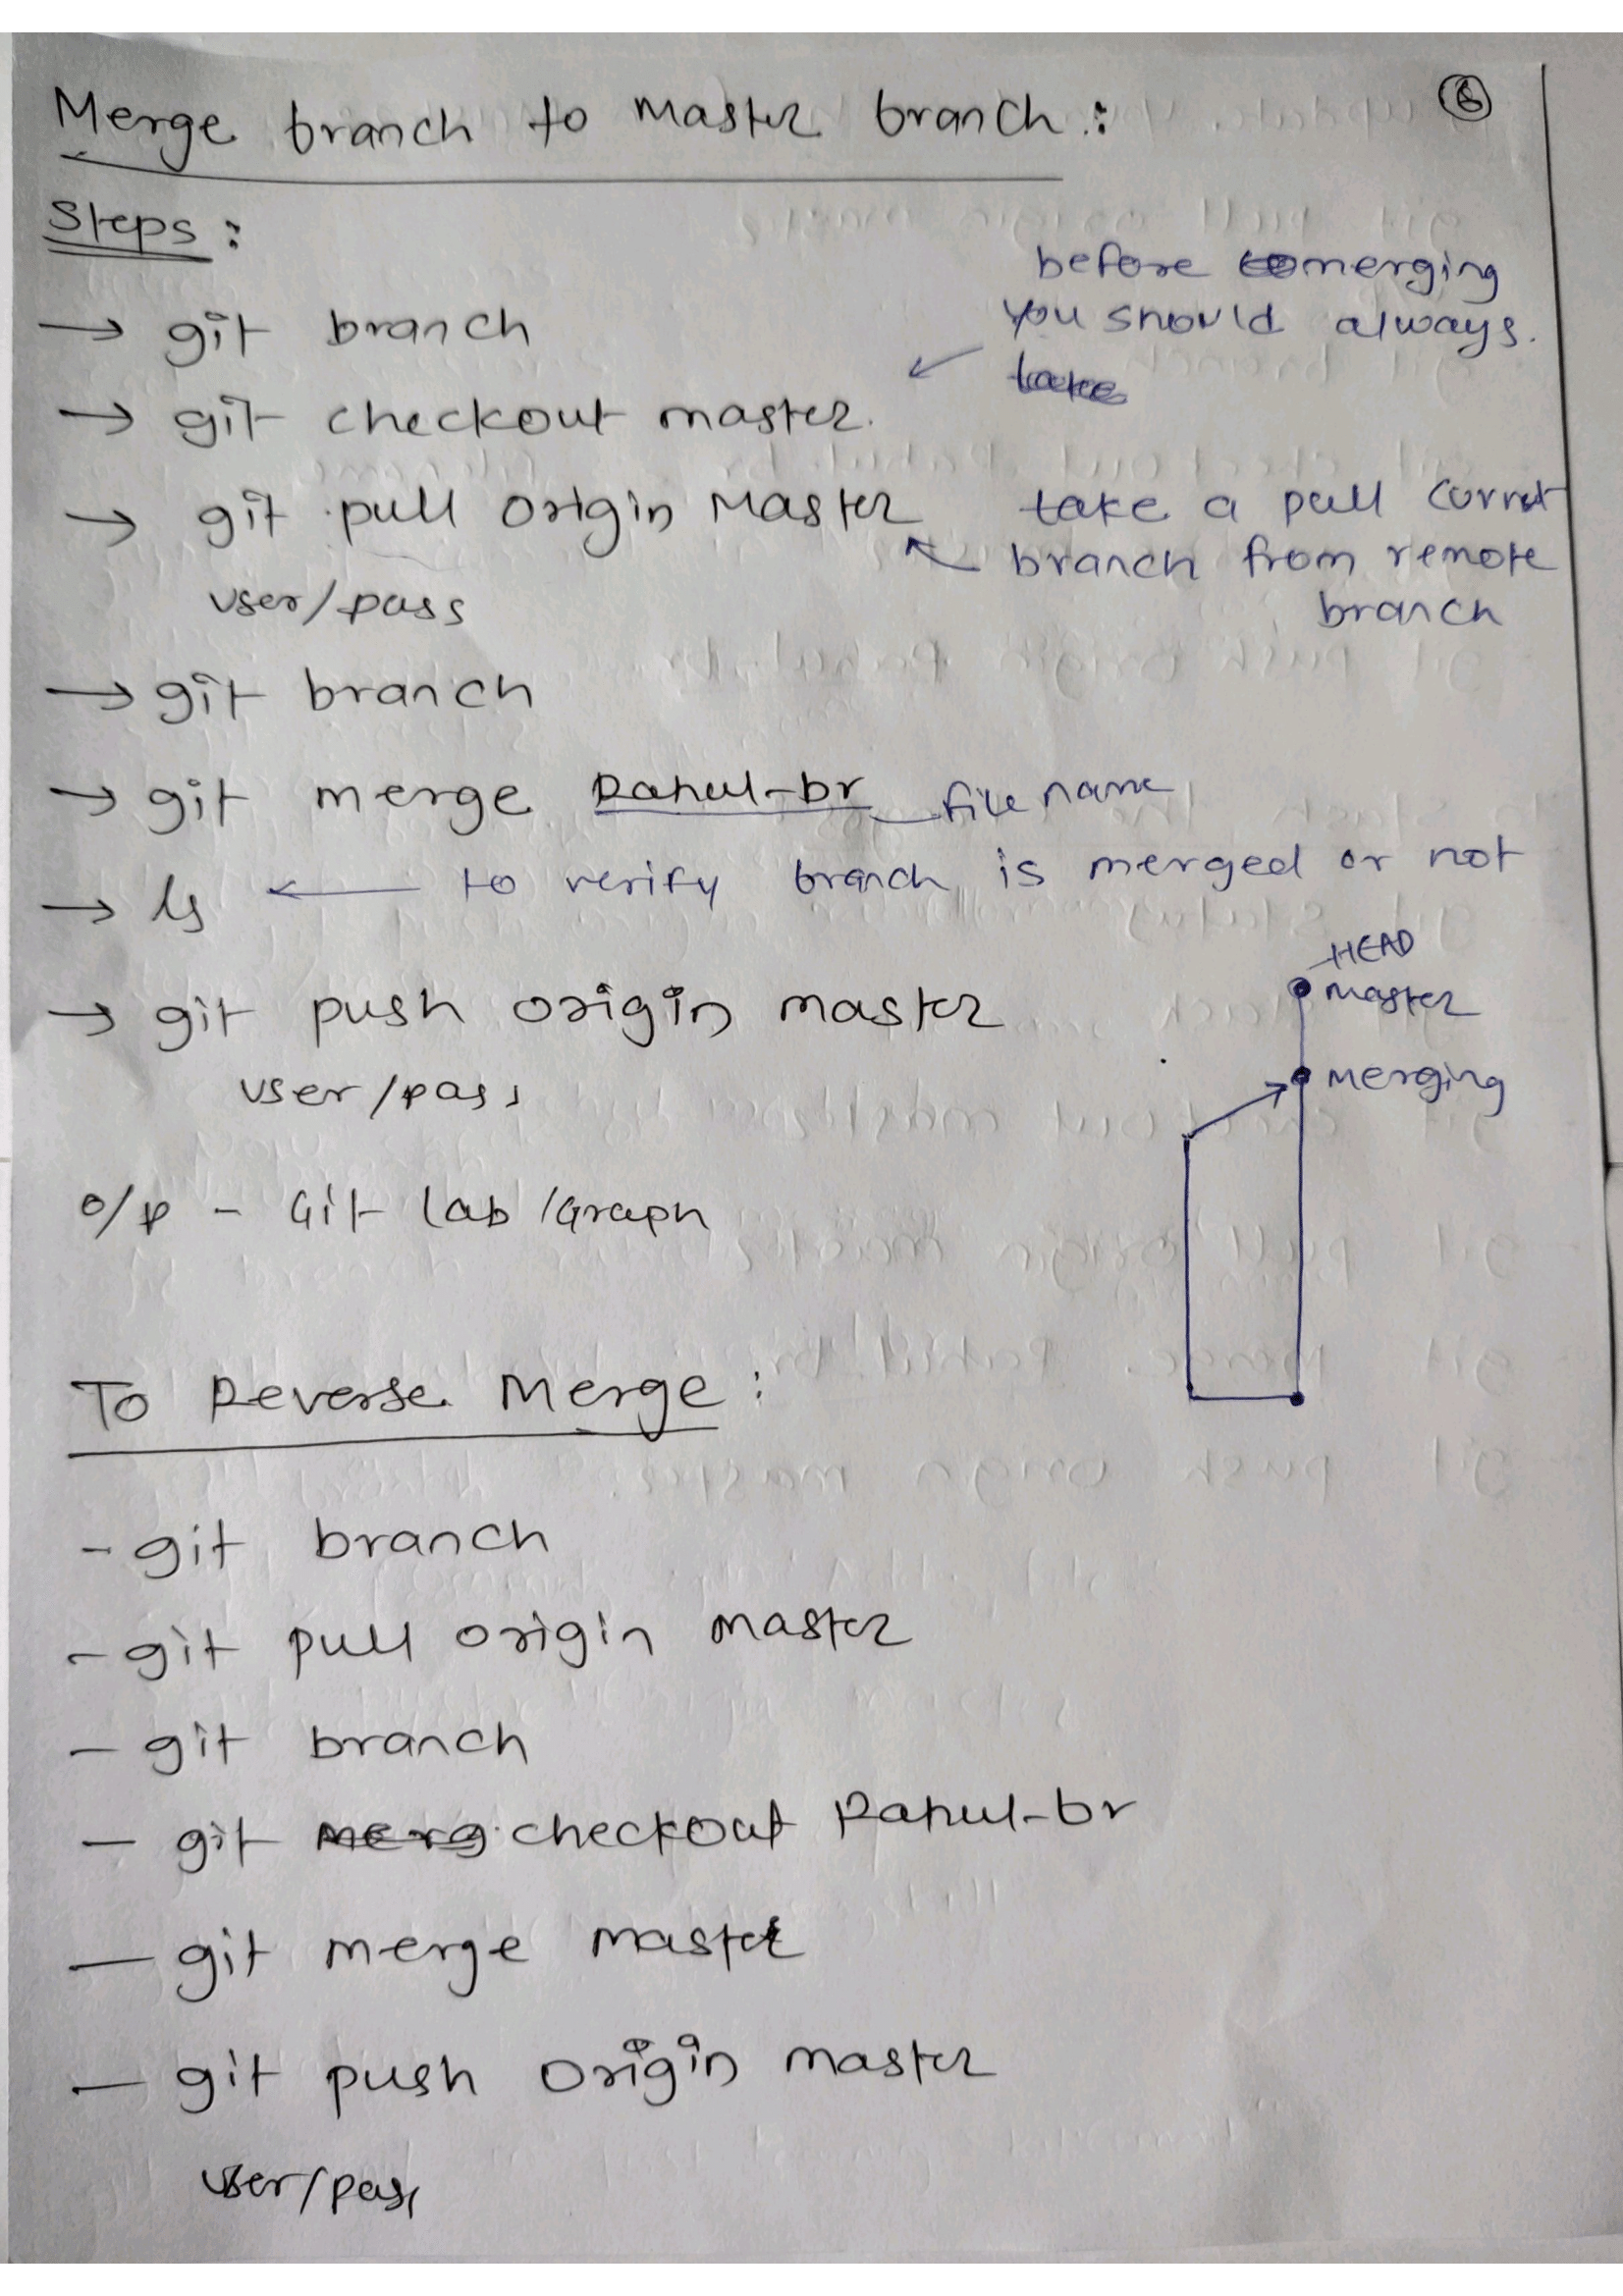 Merge branch to Master branch :
6
Steps :
before merging
you should always.
take
→ git branch
→ git checkout master.
→ git pull origin Master
take a pull corrnt
branch from remote
branch
user/pass
→ git branch
→ git merge Rahul-br file name
→ ls ← to verify branch is merged or not
→ git push origin master
user/pass
HEAD
Master
Merging
o/p - Git Lab /Graph
To Reverse Merge :
- git branch
- git pull origin master
- git branch
- git merg checkout Rahul-br
- git merge master
- git push origin master
user/pass